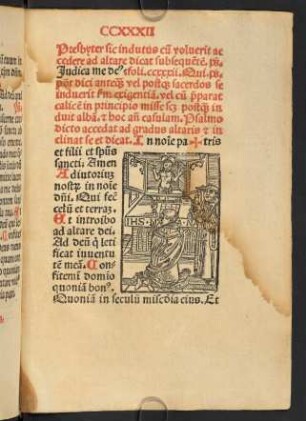 CCXXXII
Presbyter sic indutus cū voluerit ac
cedere ad altare dicat subsequētē. ps̄.
Judica me deꝰ. foli. ccxxxii. Qui. ps̄.
pn̄t dici anteq̄ vel postq̄ sacerdos se
induerit s̄m exigentiā. vel cū p̄parat
calicē in principio misse scȝ postq̄ in
duit albā. ⁊ hoc an̄ casulam. Psalmo
dicto accedat ad gradus altaris ⁊ in
clinat se et dicat. In noīe pa✠tris
et filii et sp̄us
sancti. Amen
Adiutoriuȝ
nostꝝ in noīe
dn̄i. Qui fec̄
celū et terraȝ.
Et introibo
ad altare dei.
Ad deū q̄ leti
ficat iuventu
tē meā. Con
fitemī domio
quoniā bonꝰ.
IHS
Quoniā in seculū misc̄dia eius. Et